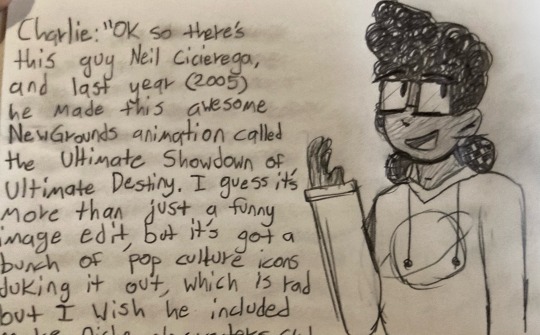 Charlie: "OK so there's
this guy Neil Cicierega,
and last year (2005)
he made this awesome
NewGrounds animation called
the Ultimate Showdown of
Ultimate Destiny. I guess it's
more than just a funny
image edit, but it's got a
bunch of pop culture icons
duking it out, which is rad
but I wish he included